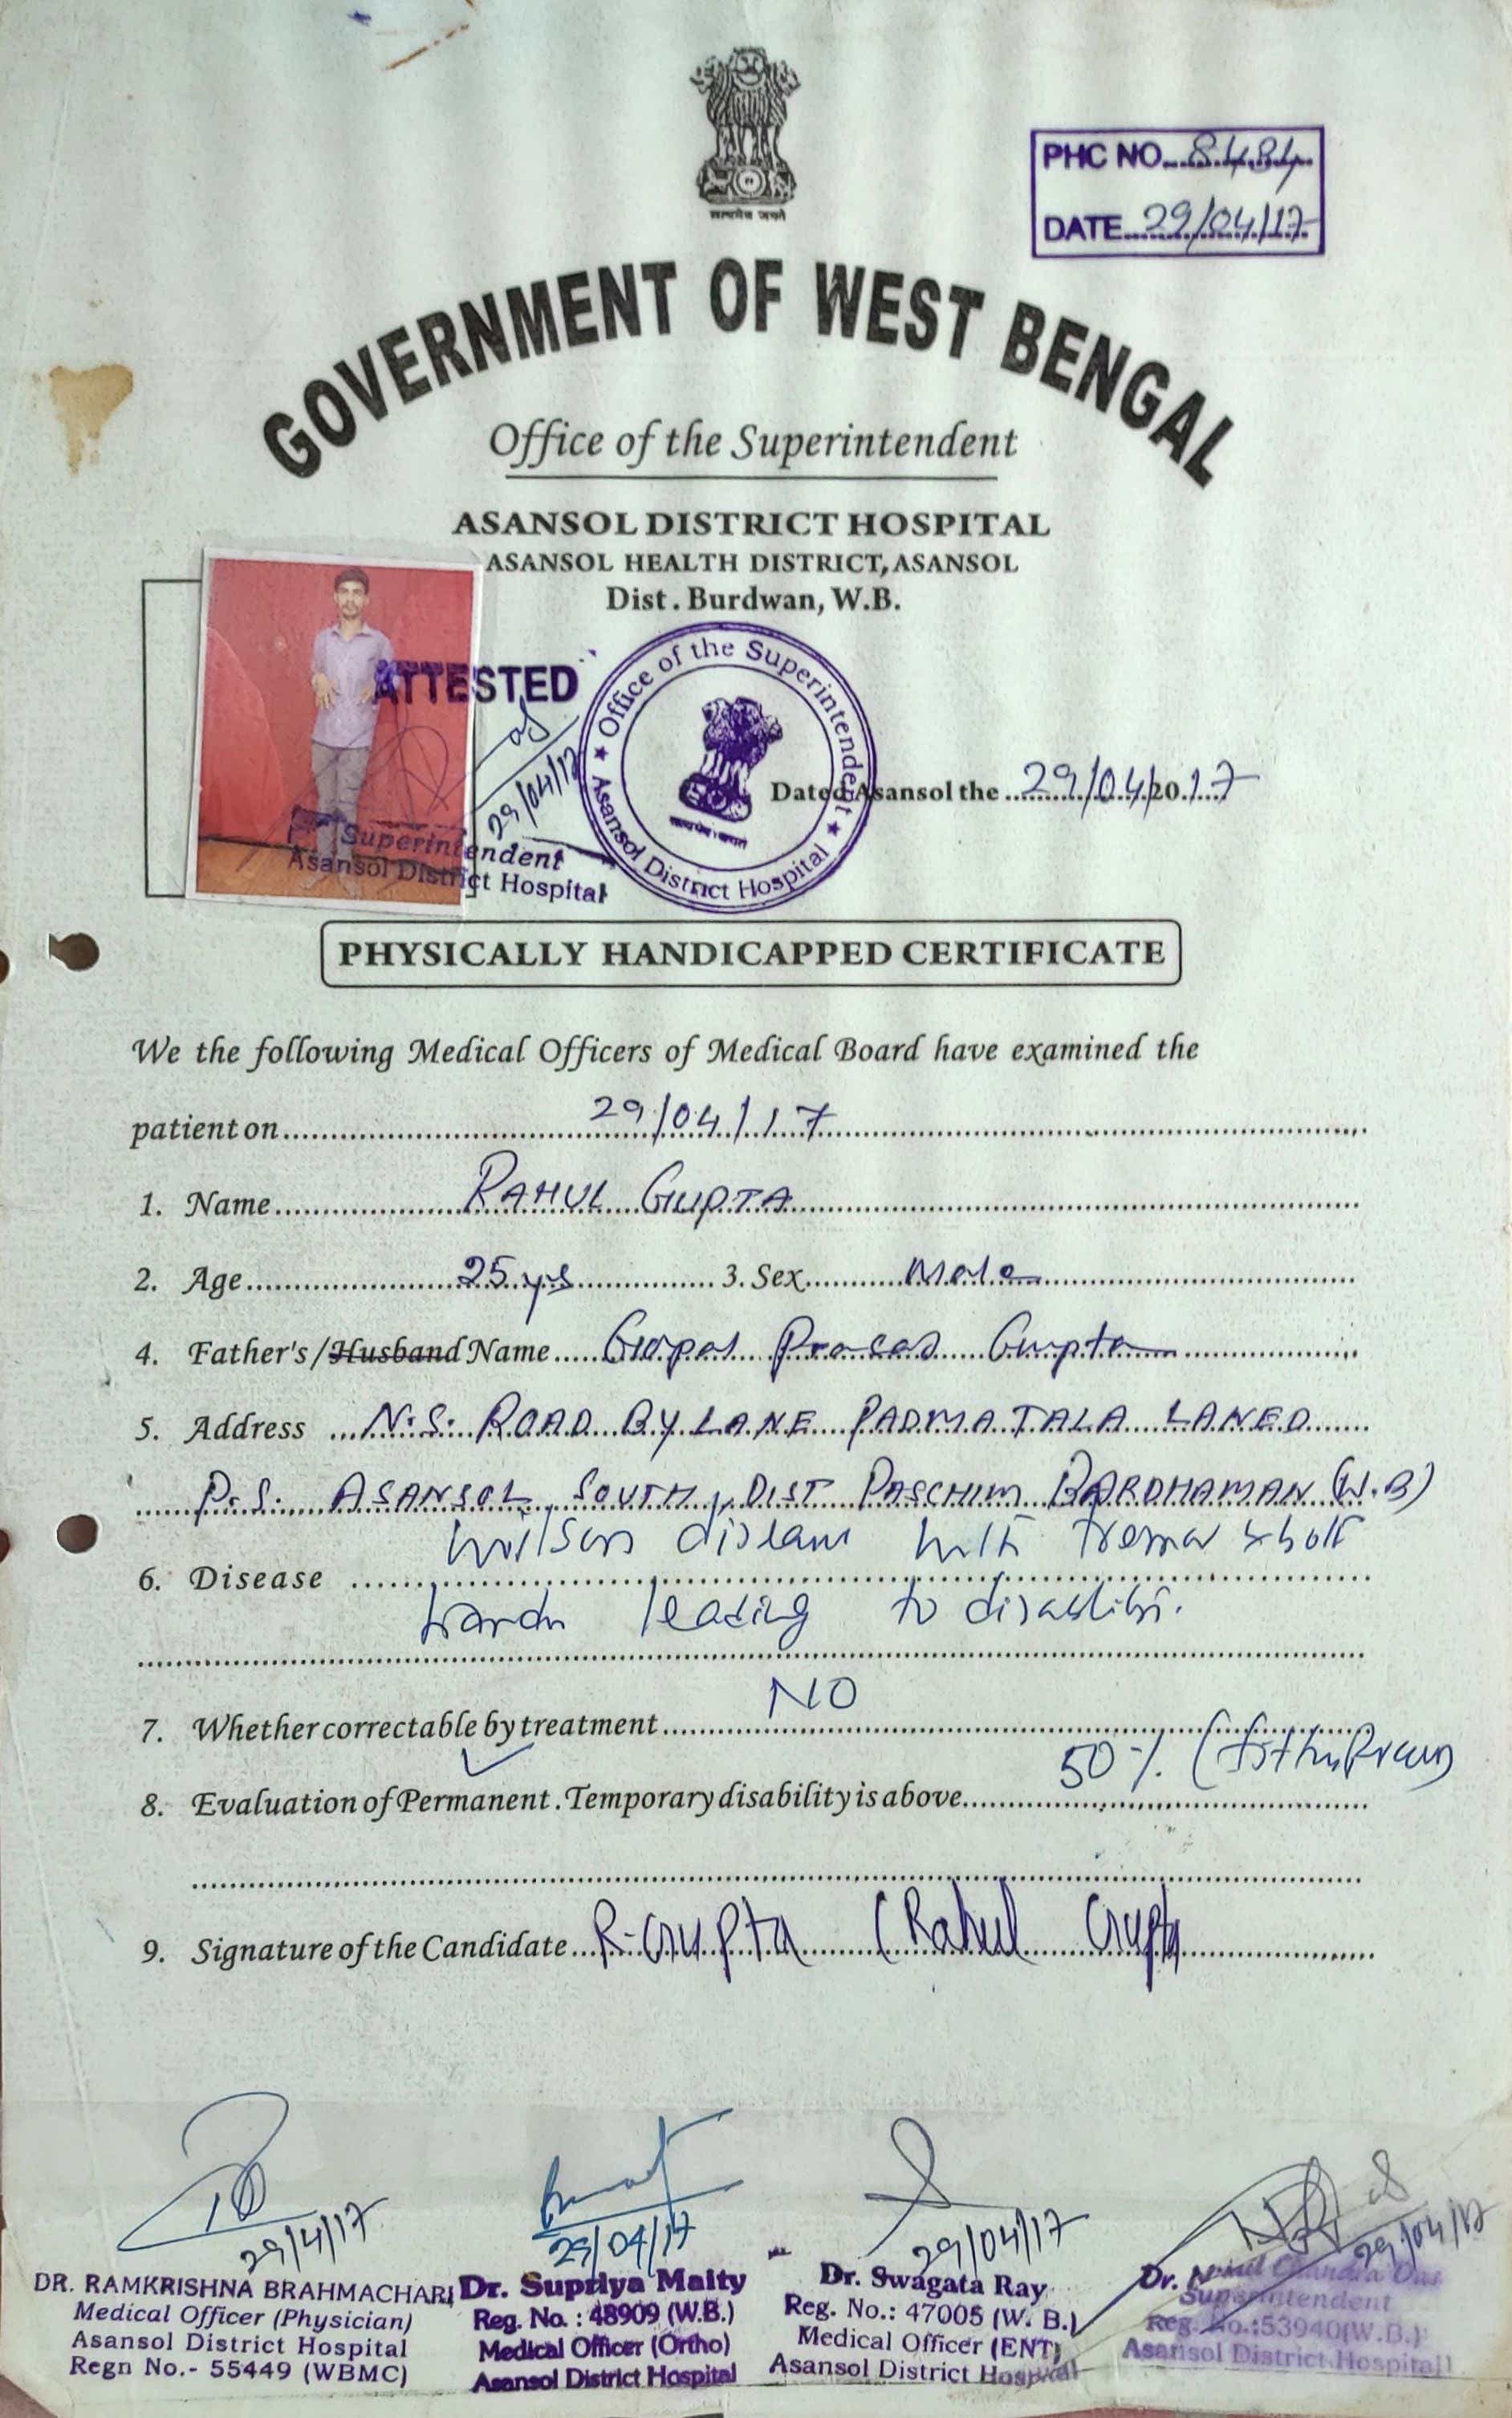 सत्यमेव जयते
PHC NO. 8484
DATE 29/04/17
GOVERNMENT OF WEST BENGAL
Office of the Superintendent
ASANSOL DISTRICT HOSPITAL
ASANSOL HEALTH DISTRICT, ASANSOL
Dist. Burdwan, W.B.
ATTESTED
29/04/17
Superintendent
Asansol District Hospital
★ Office of the Superintendent ★ Asansol District Hospital
Dated Asansol the 29/04/2017
PHYSICALLY HANDICAPPED CERTIFICATE
We the following Medical Officers of Medical Board have examined the
patient on 29/04/17
1. Name RAHUL GUPTA
2. Age 25 yrs 3. Sex Male
4. Father's / Husband Name Gopal Prasad Gupta
5. Address N.S. ROAD BY LANE PADMA TALA LANED
P.S. ASANSOL SOUTH, DIST PASCHIM BARDHAMAN (W.B)
6. Disease Wilson disease with tremor both
hands leading to disability.
7. Whether correctable by treatment NO
8. Evaluation of Permanent. Temporary disability is above 50%
9. Signature of the Candidate R-Gupta (Rahul Gupta
29/4/17
DR. RAMKRISHNA BRAHMACHARI
Medical Officer (Physician)
Asansol District Hospital
Regn No.- 55449 (WBMC)
29/04/17
Dr. Supriya Maity
Reg. No. : 48909 (W.B.)
Medical Officer (Ortho)
Asansol District Hospital
29/04/17
Dr. Swagata Ray
Reg. No.: 47005 (W. B.)
Medical Officer (ENT)
Asansol District Hospital
29/04/17
Dr. Chandra Das
Superintendent
Reg. No.:53940(W.B.)
Asansol District Hospital